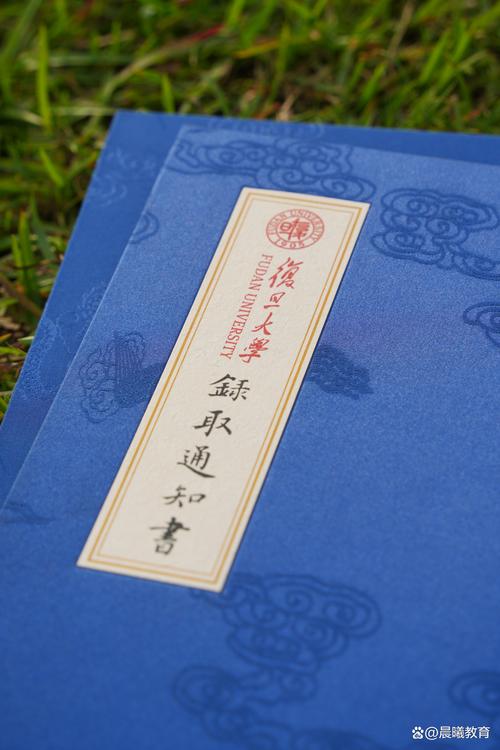 FUDAN UNIVERSITY
1905
復旦大學
FUDAN UNIVERSITY
錄取通知書
@晨曦教育